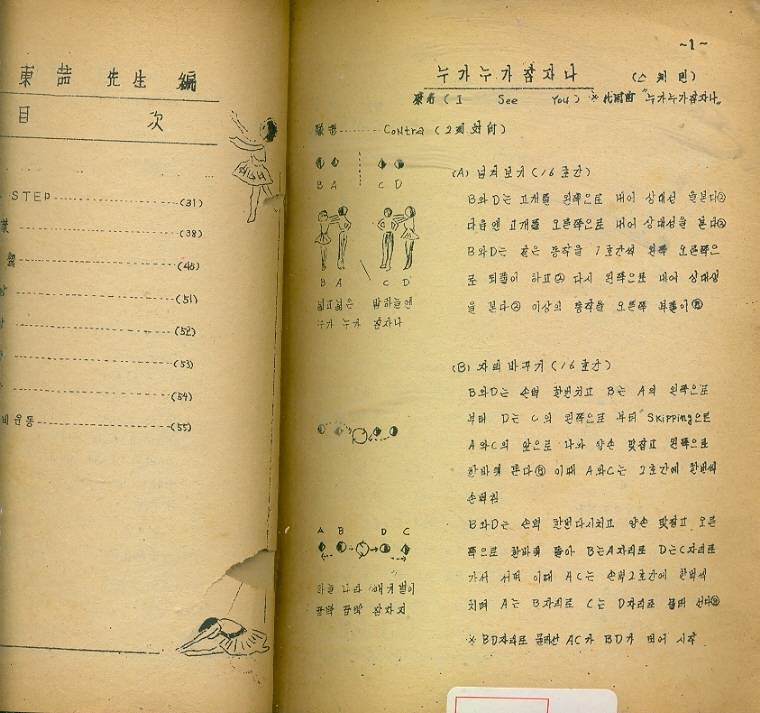 東喆 先生 編
目 次
STEP (31)
(38)
(45)
(51)
(52)
(53)
(54)
운동 (55)
~1~
누가누가잠자나 (스웨덴)
原名 (I See You) ※ 代用曲 "누가누가잠자나"
隊型 Contra (2列 対向)
B A C D
B A C D
넓고넓은 밤하늘엔
누가 누가 잠자나
(A) 넘겨보기 (16호간)
B와D는 고개를 왼쪽으로 내어 상대성을 본다②
다음엔 고개를 오른쪽으로 내어 상대성을 본다②
B와D는 같은 동작을 1호간씩 왼쪽 오른쪽으
로 되풀이 하고② 다시 왼쪽으로 내어 상대성
을 본다② 이상의 동작을 오른쪽 부터 ⑧
(B) 자리바꾸기 (16호간)
B와D는 손뼉 한번치고 B는 A의 왼쪽으로
부터 D는 C의 왼쪽으로 부터 Skipping으로
A와C의 앞으로 나와 양손 맞잡고 왼쪽으로
한바퀴 돈다⑧ 이때 A와C는 2호간에 한번씩
손뼉침
A B D C
B와D는 손뼉 한번다시치고 양손 맞잡고 오른
쪽으로 한바퀴 돌아 B는A자리로 D는C자리로
가서 서며 이때 AC는 손뼉2호간에 한번씩
치며 A는 B자리로 C는 D자리로 물러 선다⑧
하늘 나라 아기별이
깜박 깜박 잠자지
※ BD자리로 물러선 AC가 BD가 되어 시작